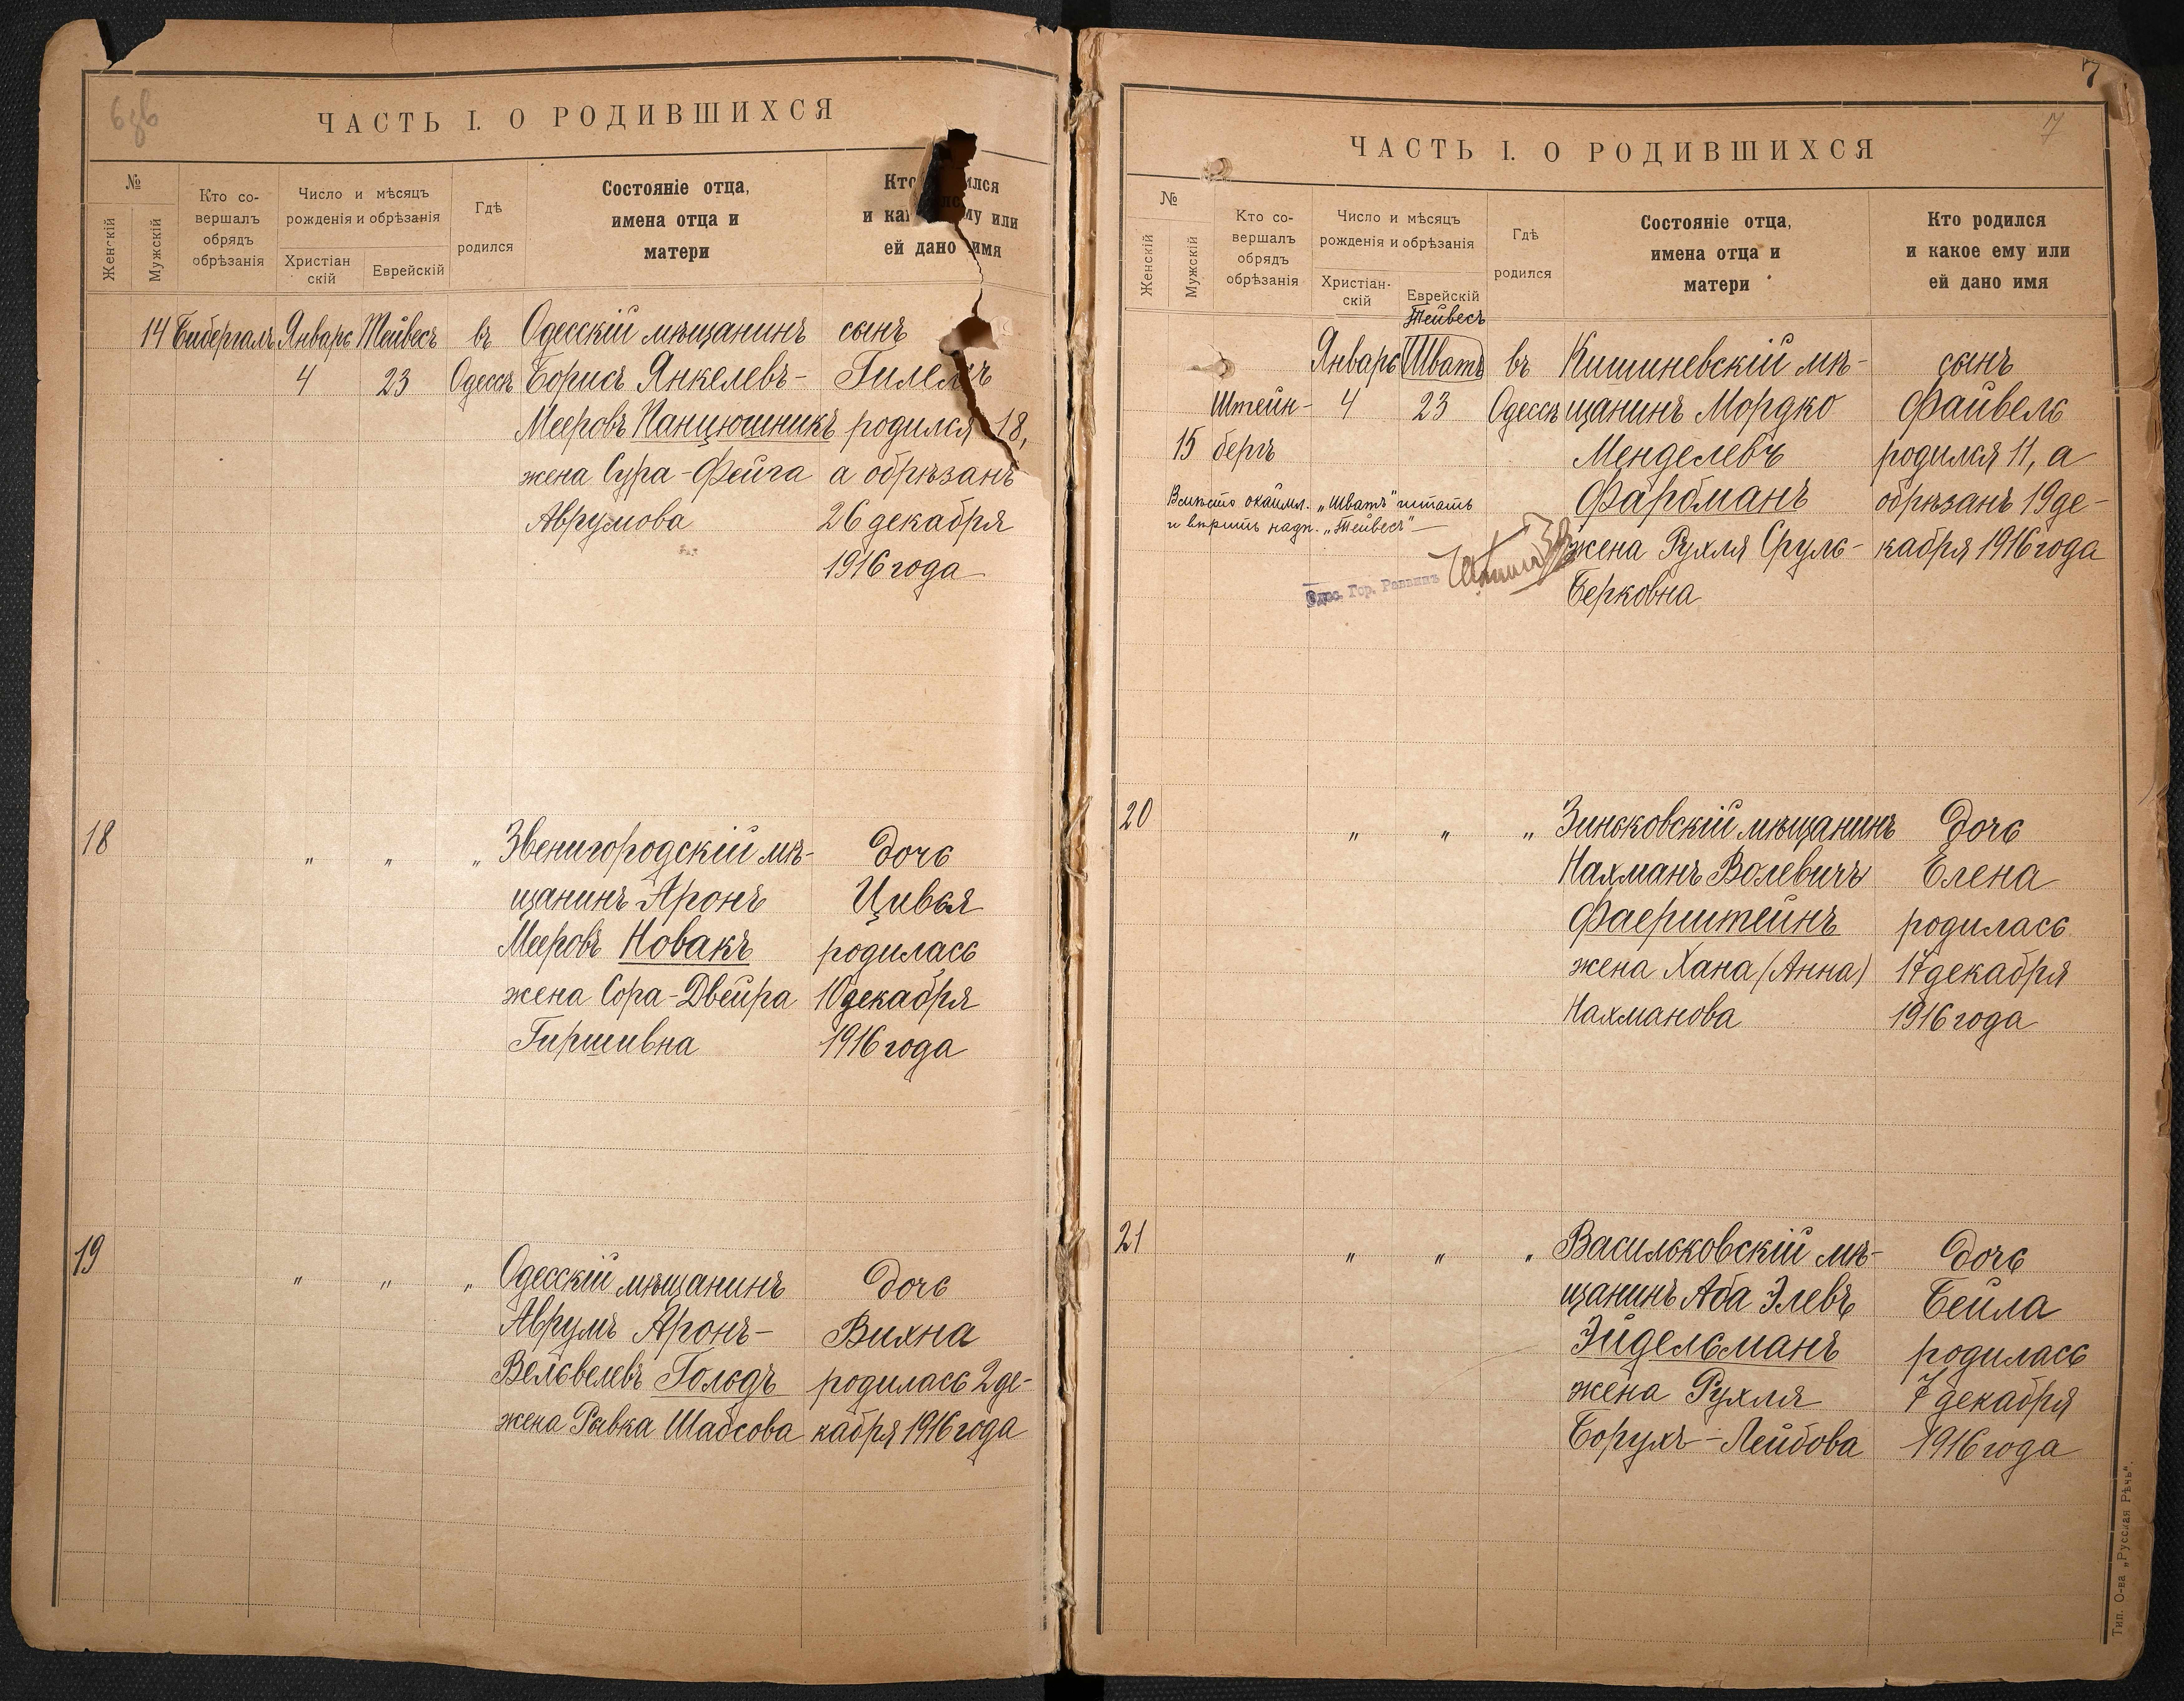 6 зв
ЧАСТЬ I. О РОДИВШИХСЯ
№
Женскій
Мужскій
Кто со-
вершалъ
обрядъ
обрѣзанія
Число и мѣсяцъ
рожденія и обрѣзанія
Христіан
скій
Еврейскій
Гдѣ
родился
Состояніе отца,
имена отца и
матери
ей дано имя
14 Бибергалъ Январь Тейвесъ въ Одесскій мѣщанинъ сынъ
4 23 Одессѣ Борисъ Янкелевъ-
Мееровъ Панцюшникъ родился 18,
жена Сура-Фейга а обрѣзанъ
Аврумова 26 декабря
1916 года
18 " " " Звенигородскій мѣ- дочь
щанинъ Аронъ Цивья
Мееровъ Новакъ родилась
жена Сора-Двейра 10 декабря
Гиршивна 1916 года
19 " " " Одесскій мѣщанинъ дочь
Аврумъ Аронъ- Вихна
Вельвелевъ Гольдъ родилась 2 де-
жена Ривка Шабсова кабря 1916 года
7
7
ЧАСТЬ I. О РОДИВШИХСЯ
№
Женскій
Мужскій
Кто со-
вершалъ
обрядъ
обрѣзанія
Число и мѣсяцъ
рожденія и обрѣзанія
Христіан-
скій
Еврейскій
Гдѣ
родился
Состояніе отца,
имена отца и
матери
Кто родился
и какое ему или
ей дано имя
Тейвесъ
Январь Шватъ въ Кишиневскій мѣ- сынъ
Штейн- 4 23 Одессѣ щанинъ Мордко Файвель
15 бергъ Менделевъ родился 11, а
Фарбманъ обрѣзанъ 19 де-
Вмѣсто окаймл. „Шватъ" читать
и вѣрить надп. „Тейвесъ"
жена Рухля Сруль- кабря 1916 года
Одес. Гор. Раввинъ
Берковна
20 " " " Зиньковскій мѣщанинъ дочь
Нахманъ Волевичъ Елена
Фаерштейнъ родилась
жена Хана (Анна) 17 декабря
Нахманова 1916 года
21 " " " Васильковскій мѣ- дочь
щанинъ Аба Элевъ Бейла
Эйдельманъ родилась
жена Рухля 7 декабря
Борухъ-Лейбова 1916 года
Тип. О-ва „Русская Рѣчь".